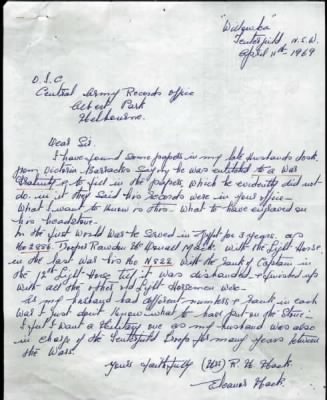 Tenterfield N.S.W.
April 11th 1969
O.I.C.
Central Army Records Office
Albert Park
Melbourne.
Dear Sir,
I have found some papers in my late husbands desk
from Victoria Barracks saying he was entitled to a War
Gratuity & to fill in the papers, which he evidently did not
do. in it they said his records were in your office -
What I want to know is this - What to have engraved on
his headstone.
In the first World War he served in for 3 years. as
No Rawdon Mack. with the Light Horse
in the last war his No with the rank of Captain in
the 12th Light Horse till it was disbanded & finished up
with all the other old Light Horsemen were -
As my husband had different numbers & rank in each
War I just don't know what to have put on the Stone -
I feel I want a Military one as my husband was also
in charge of the Tenterfield Troop for many years between
the Wars.
Yours faithfully (Mrs) R. H. Mack.
Eleanor Mack.